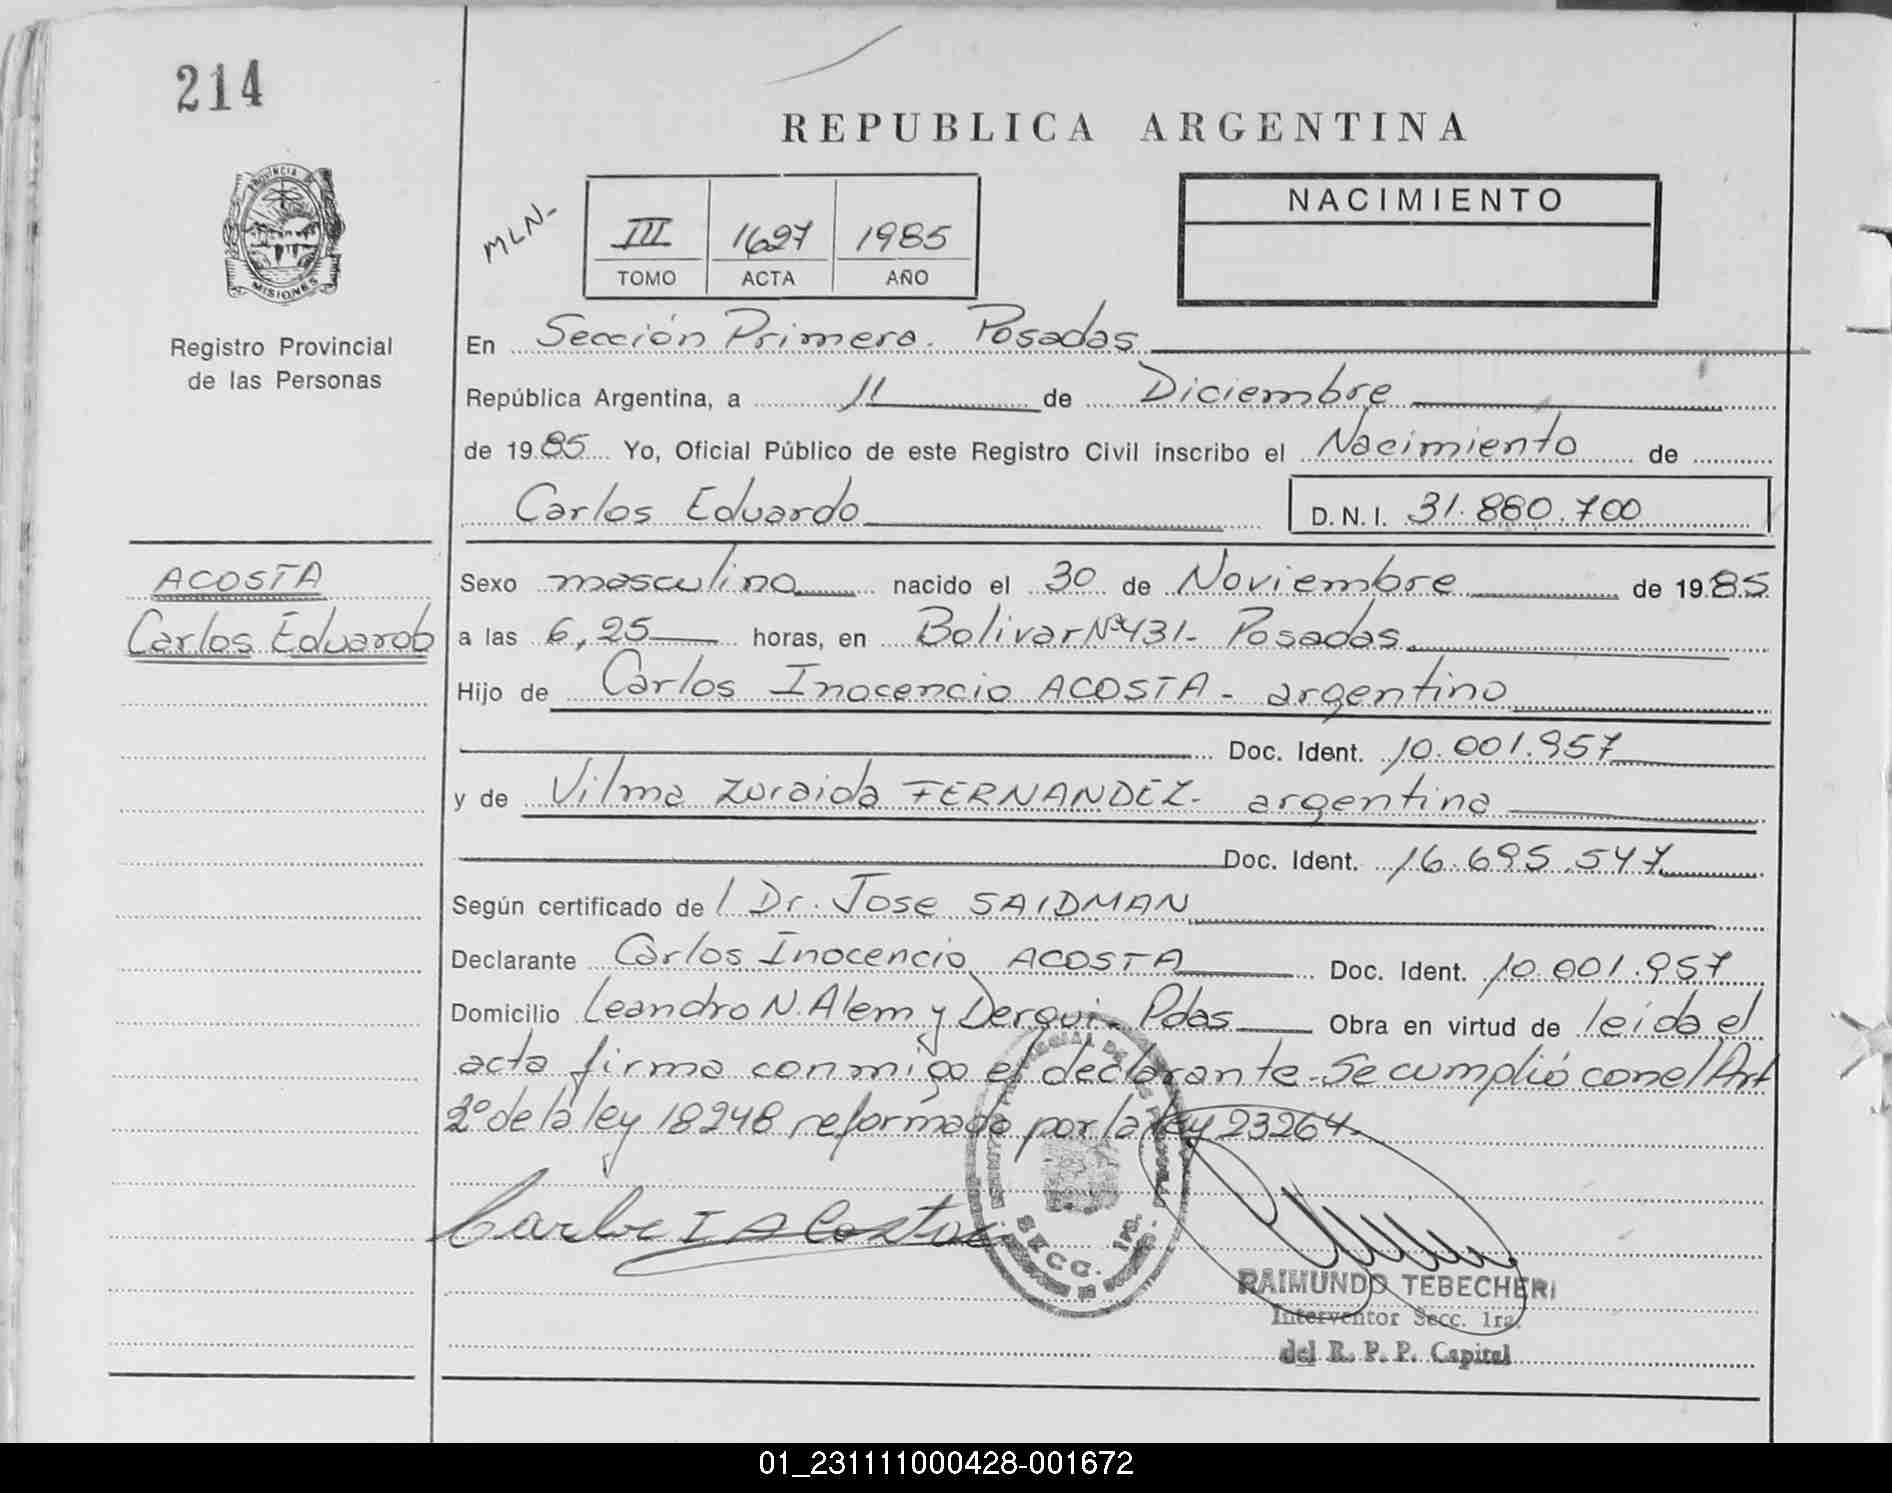 214
REPUBLICA ARGENTINA
PROVINCIA DE
MISIONES
MLN-
III 1627 1985
TOMO ACTA AÑO
NACIMIENTO
Registro Provincial
de las Personas
En Sección Primera. Posadas
República Argentina, a 11 de Diciembre
de 1985 Yo, Oficial Público de este Registro Civil inscribo el Nacimiento de
Carlos Eduardo D.N.I. 31.880.700
ACOSTA
Carlos Eduardo
Sexo masculino nacido el 30 de Noviembre de 1985
a las 6,25 horas, en Bolivar Nº431- Posadas
Hijo de Carlos Inocencio ACOSTA - argentino
Doc. Ident. 10.001.957
y de Vilma Zuraida FERNANDEZ- argentina
Doc. Ident. 16.695.547
Según certificado de l Dr. Jose SAIDMAN
Declarante Carlos Inocencio ACOSTA Doc. Ident. 10.001.957
Domicilio Leandro N. Alem y Derqui- Pdas Obra en virtud de leída el
acta firma conmigo el declarante. Se cumplió con el Art
2º de la ley 18248 reformado por la ley 23264.
Carlos I Acosta
SECC. 1ra.
RAIMUNDO TEBECHERI
Interventor Secc. 1ra.
del R. P. P. Capital
01_231111000428-001672